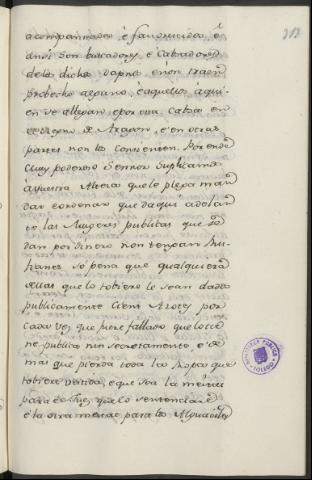 acompañados é favorecidos, é
de los dichos daños é non traen
probecho alguno, é aquellos á qui-
en se allegan, é por esta cabsa en
el Regno de Aragon, é en otras
partes non los consienten. Por ende
muy poderoso Sennor Suplicamos
á vuestra Alteza que le plega man
dar é ordenar que de aqui adelan
te las Mugeres publicas que se
dan por dinero non tengan Ru-
fianes só pena que qualquiera
dellas que lo tobiere le sean dados
publicamente cient Azotes por
cada vez que fuere fallado que lo tie
ne publica nin secretamente, é de
mas que pierda toda la Ropa que
tobiere vestida, é que sea la meitad
para el Juez que lo sentenciare
é la otra meitad para los Alguaciles
BIBLIOTECA PUBLICA
TOLEDO